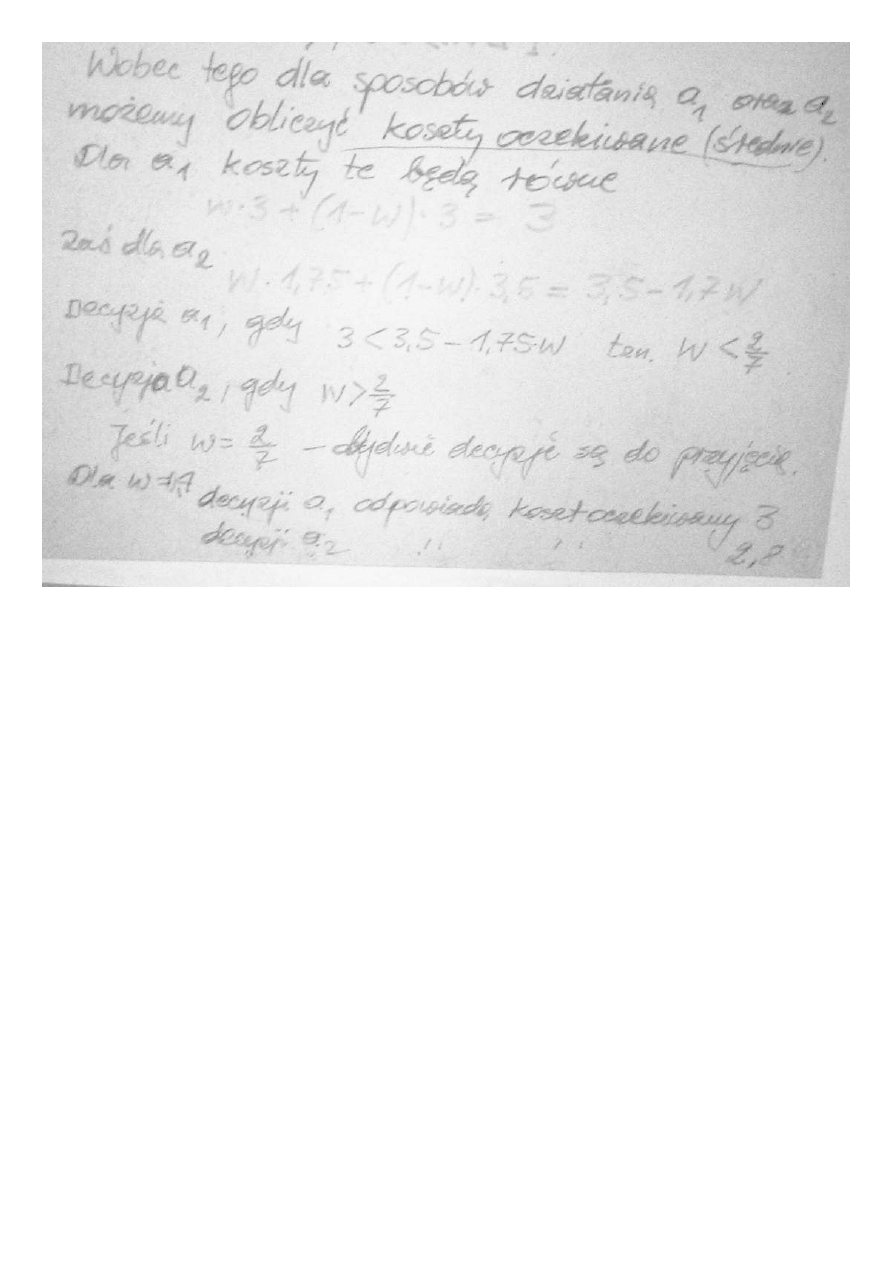 Wobec tego dla sposobów działania a₁ oraz a₂
możemy obliczyć koszty oczekiwane (średnie).
Dla a₁ koszty te będą równe
w·3 + (1-w)·3 = 3
zaś dla a₂
w·1,75 + (1-w)·3,5 = 3,5 - 1,7w
Decyzja a₁, gdy 3 < 3,5 - 1,75·w tzn. w < 2/7
Decyzja a₂, gdy w > 2/7
Jeśli w = 2/7 - obydwie decyzje są do przyjęcia.
Dla w
decyzji a₁ odpowiada koszt oczekiwany 3
decyzji a₂ " " 2,8